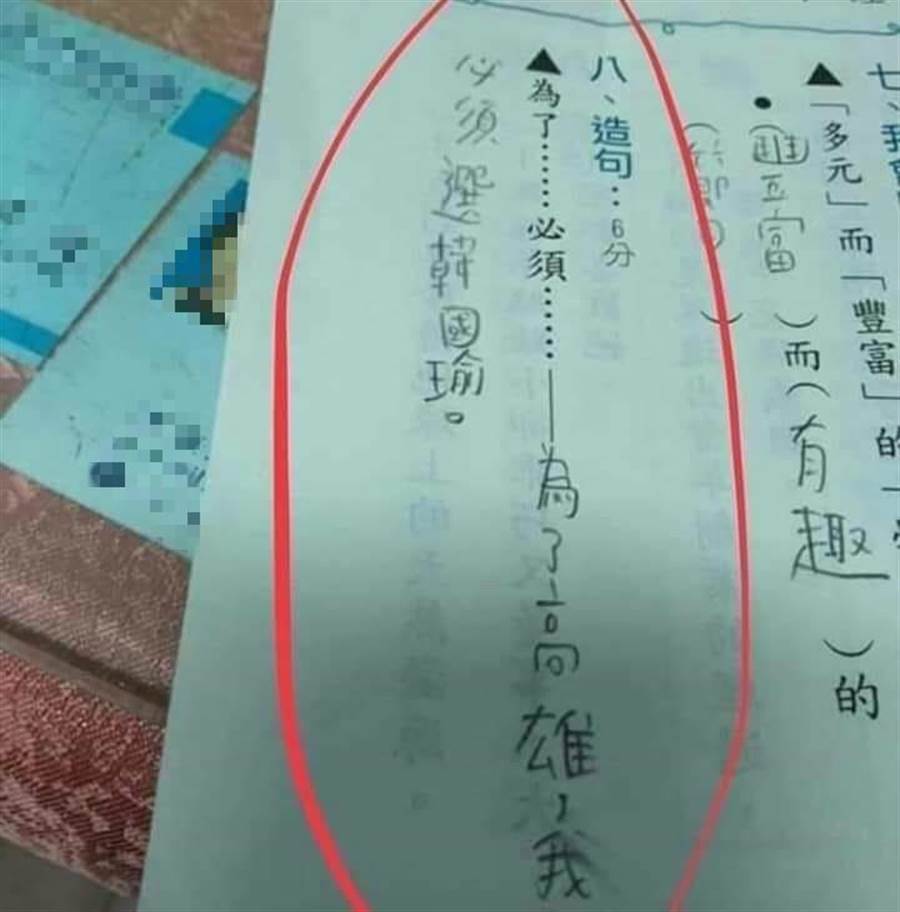 ▲「多元」而「豐富」的
●(豐富)而(有趣)的
八、造句：6分
▲為了……必須……──為了高雄，我
必須選韓國瑜。